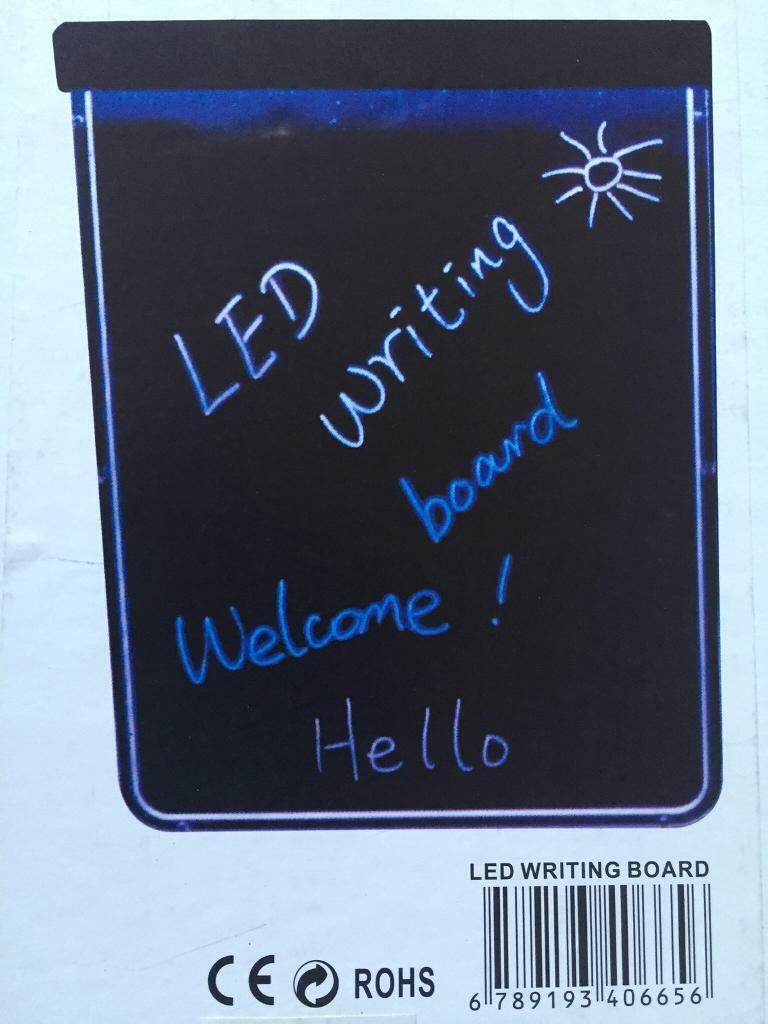 LED
Writing
board
Welcome !
Hello
LED WRITING BOARD
CE ROHS
6 789193 406656